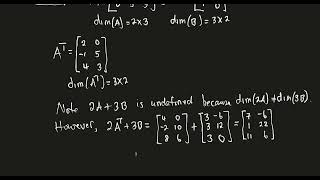 dim(A)=2x3 dim(B)=3x2
A^T = [2 0
-1 5
4 3]
dim(A^T)=3x2
Note 2A+3B is undefined because dim(2A)≠dim(3B)
However, 2A^T+3B = [4 0 + [3 -6 = [7 -6
-2 10 3 12 1 22
8 6] 3 0] 11 6]